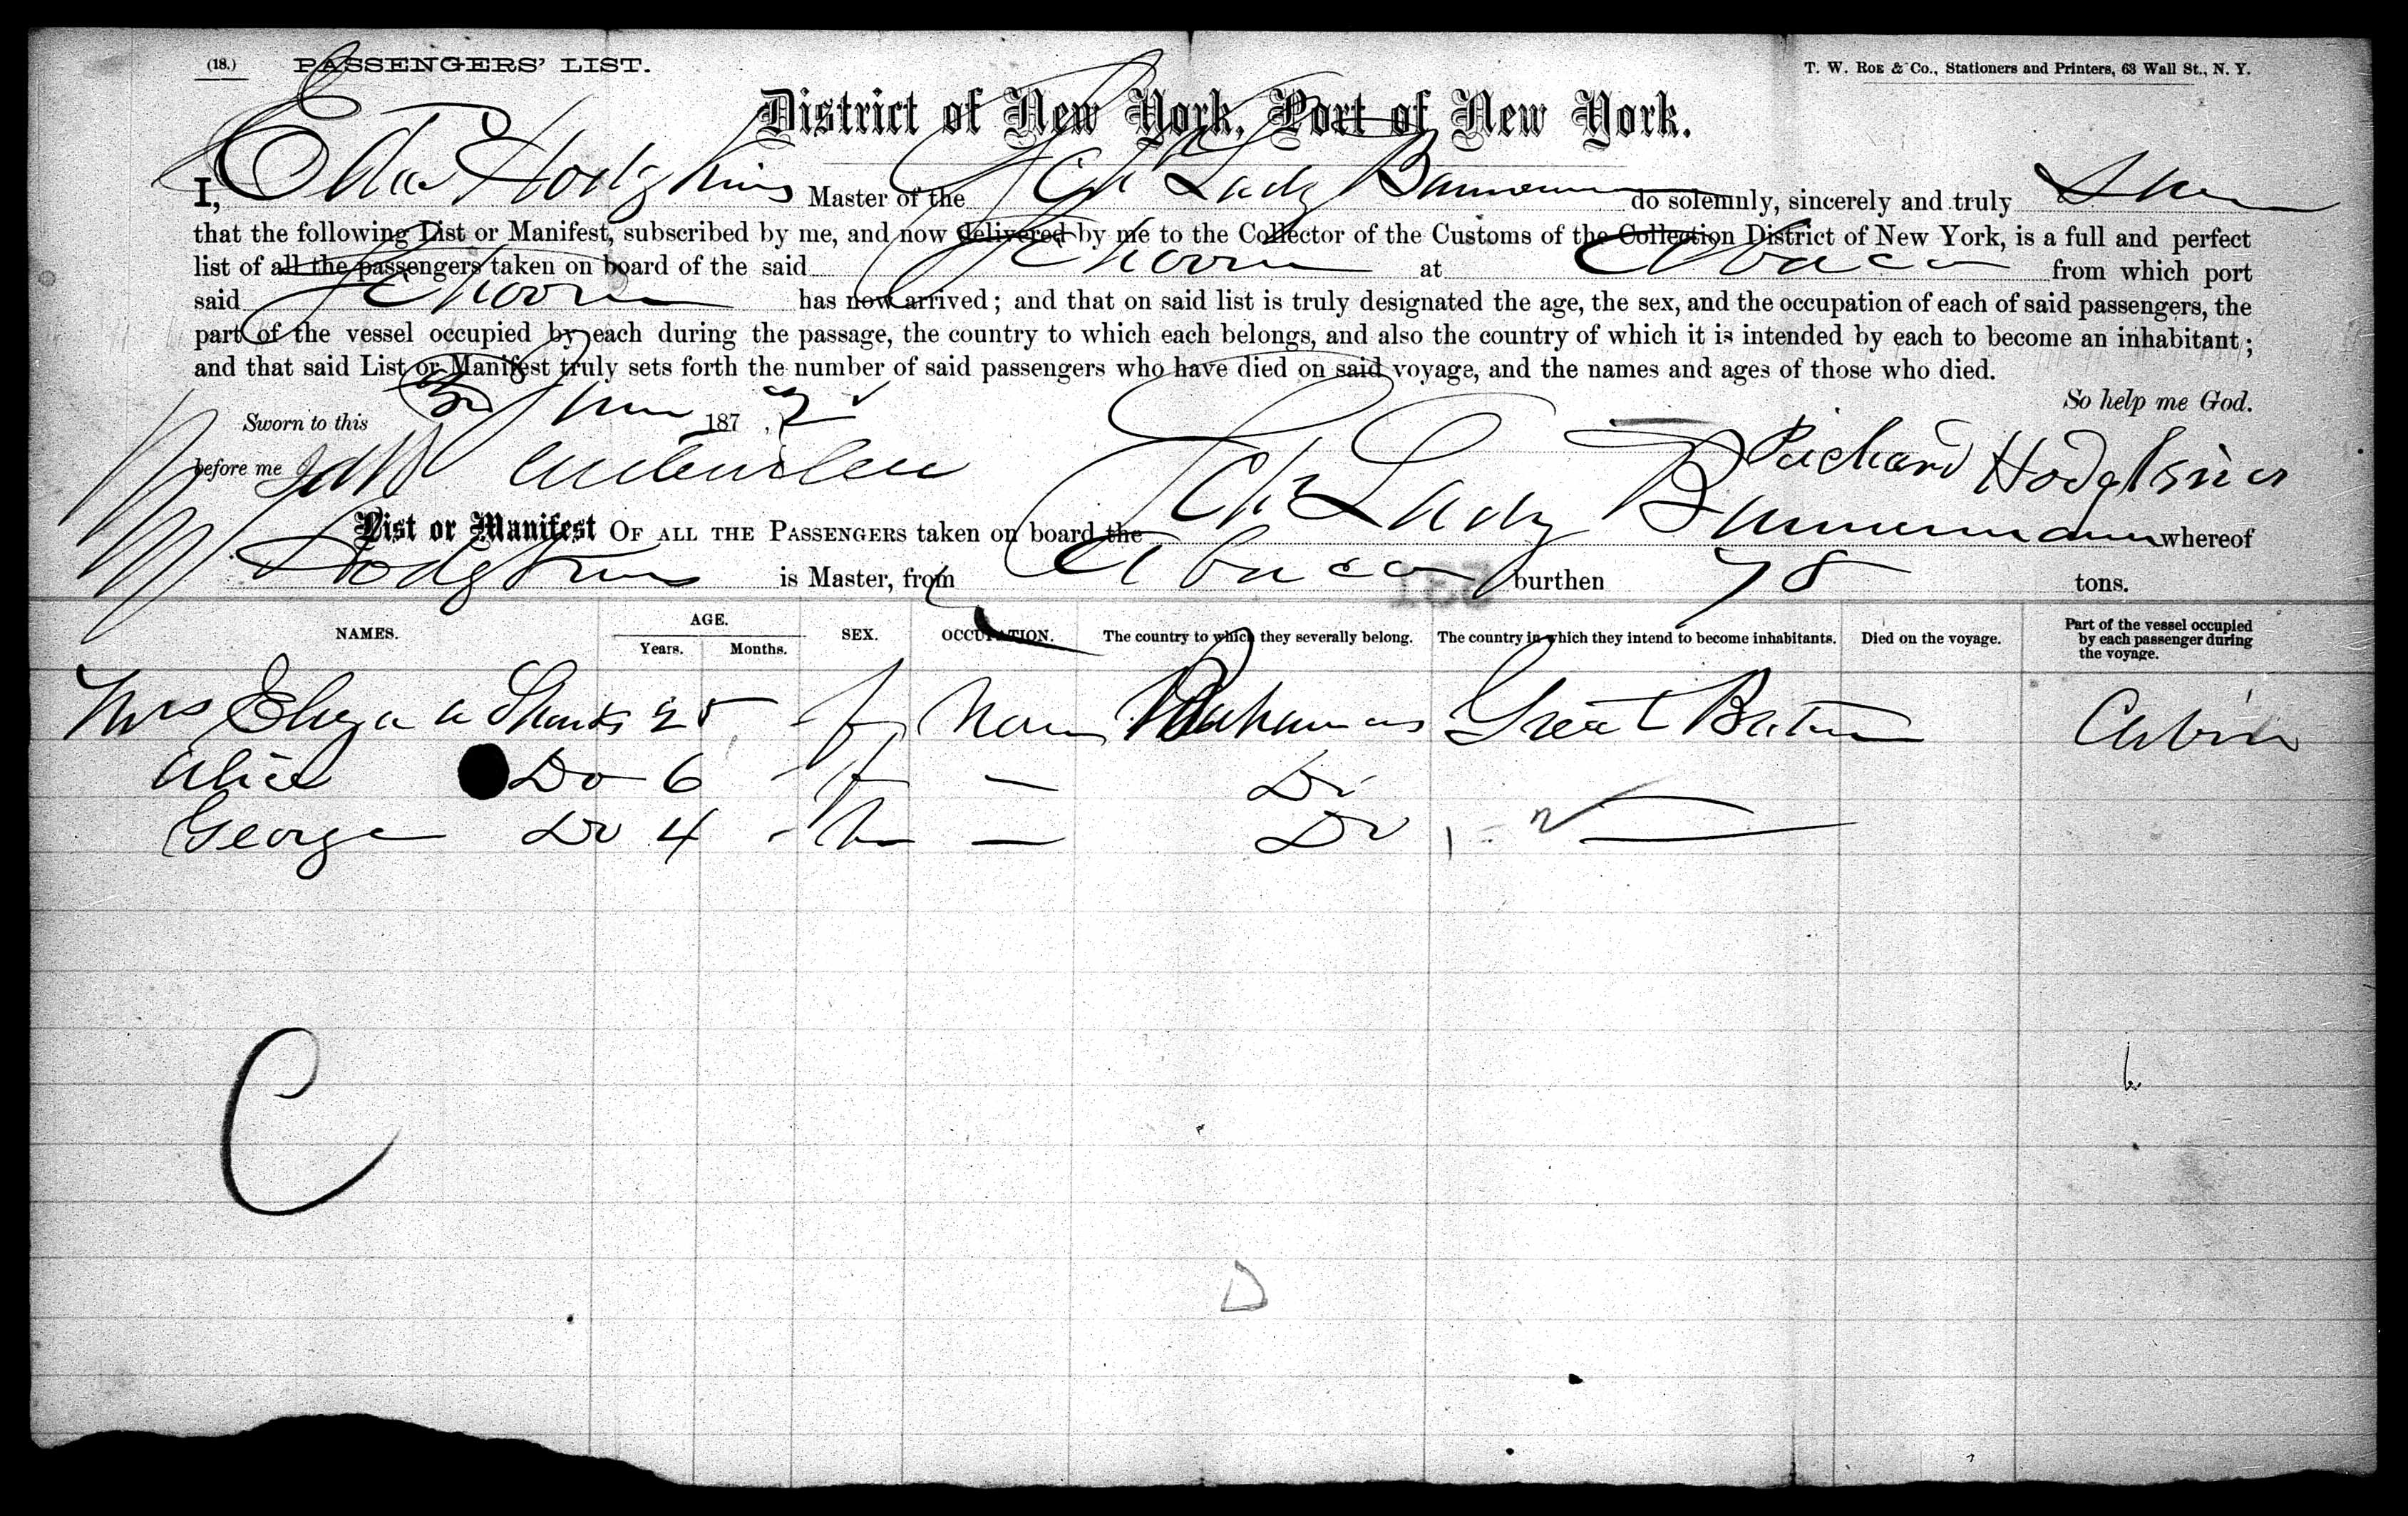 (18.) PASSENGERS' LIST. T. W. ROE & Co., Stationers and Printers, 63 Wall St., N. Y.
District of New York, Port of New York.
I, Hodgkins Master of the Schr Lady Bannerman do solemnly, sincerely and truly
that the following List or Manifest, subscribed by me, and now delivered by me to the Collector of the Customs of the Collection District of New York, is a full and perfect
list of all the passengers taken on board of the said Schooner at Abaco from which port
said Schooner has now arrived; and that on said list is truly designated the age, the sex, and the occupation of each of said passengers, the
part of the vessel occupied by each during the passage, the country to which each belongs, and also the country of which it is intended by each to become an inhabitant;
and that said List or Manifest truly sets forth the number of said passengers who have died on said voyage, and the names and ages of those who died.
So help me God.
Sworn to this June 187
before me Richard Hodgkins
List or Manifest OF ALL THE PASSENGERS taken on board the Schr Lady Bannerman whereof
Hodgkins is Master, from Abaco burthen 78 tons.
NAMES. AGE. Years. Months. SEX. OCCUPATION. The country to which they severally belong. The country in which they intend to become inhabitants. Died on the voyage. Part of the vessel occupied by each passenger during the voyage.
Mrs Eliza a 25 - f None Bahamas Great Britain Cabin
Alice Do 6 - f — Do
George Do 4 - m — Do
C
D